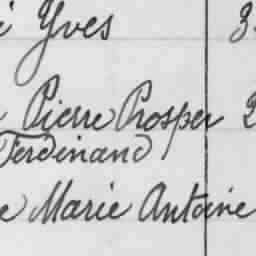 Yves 3
Pierre Prosper 2
Ferdinand
e Marie Antoine